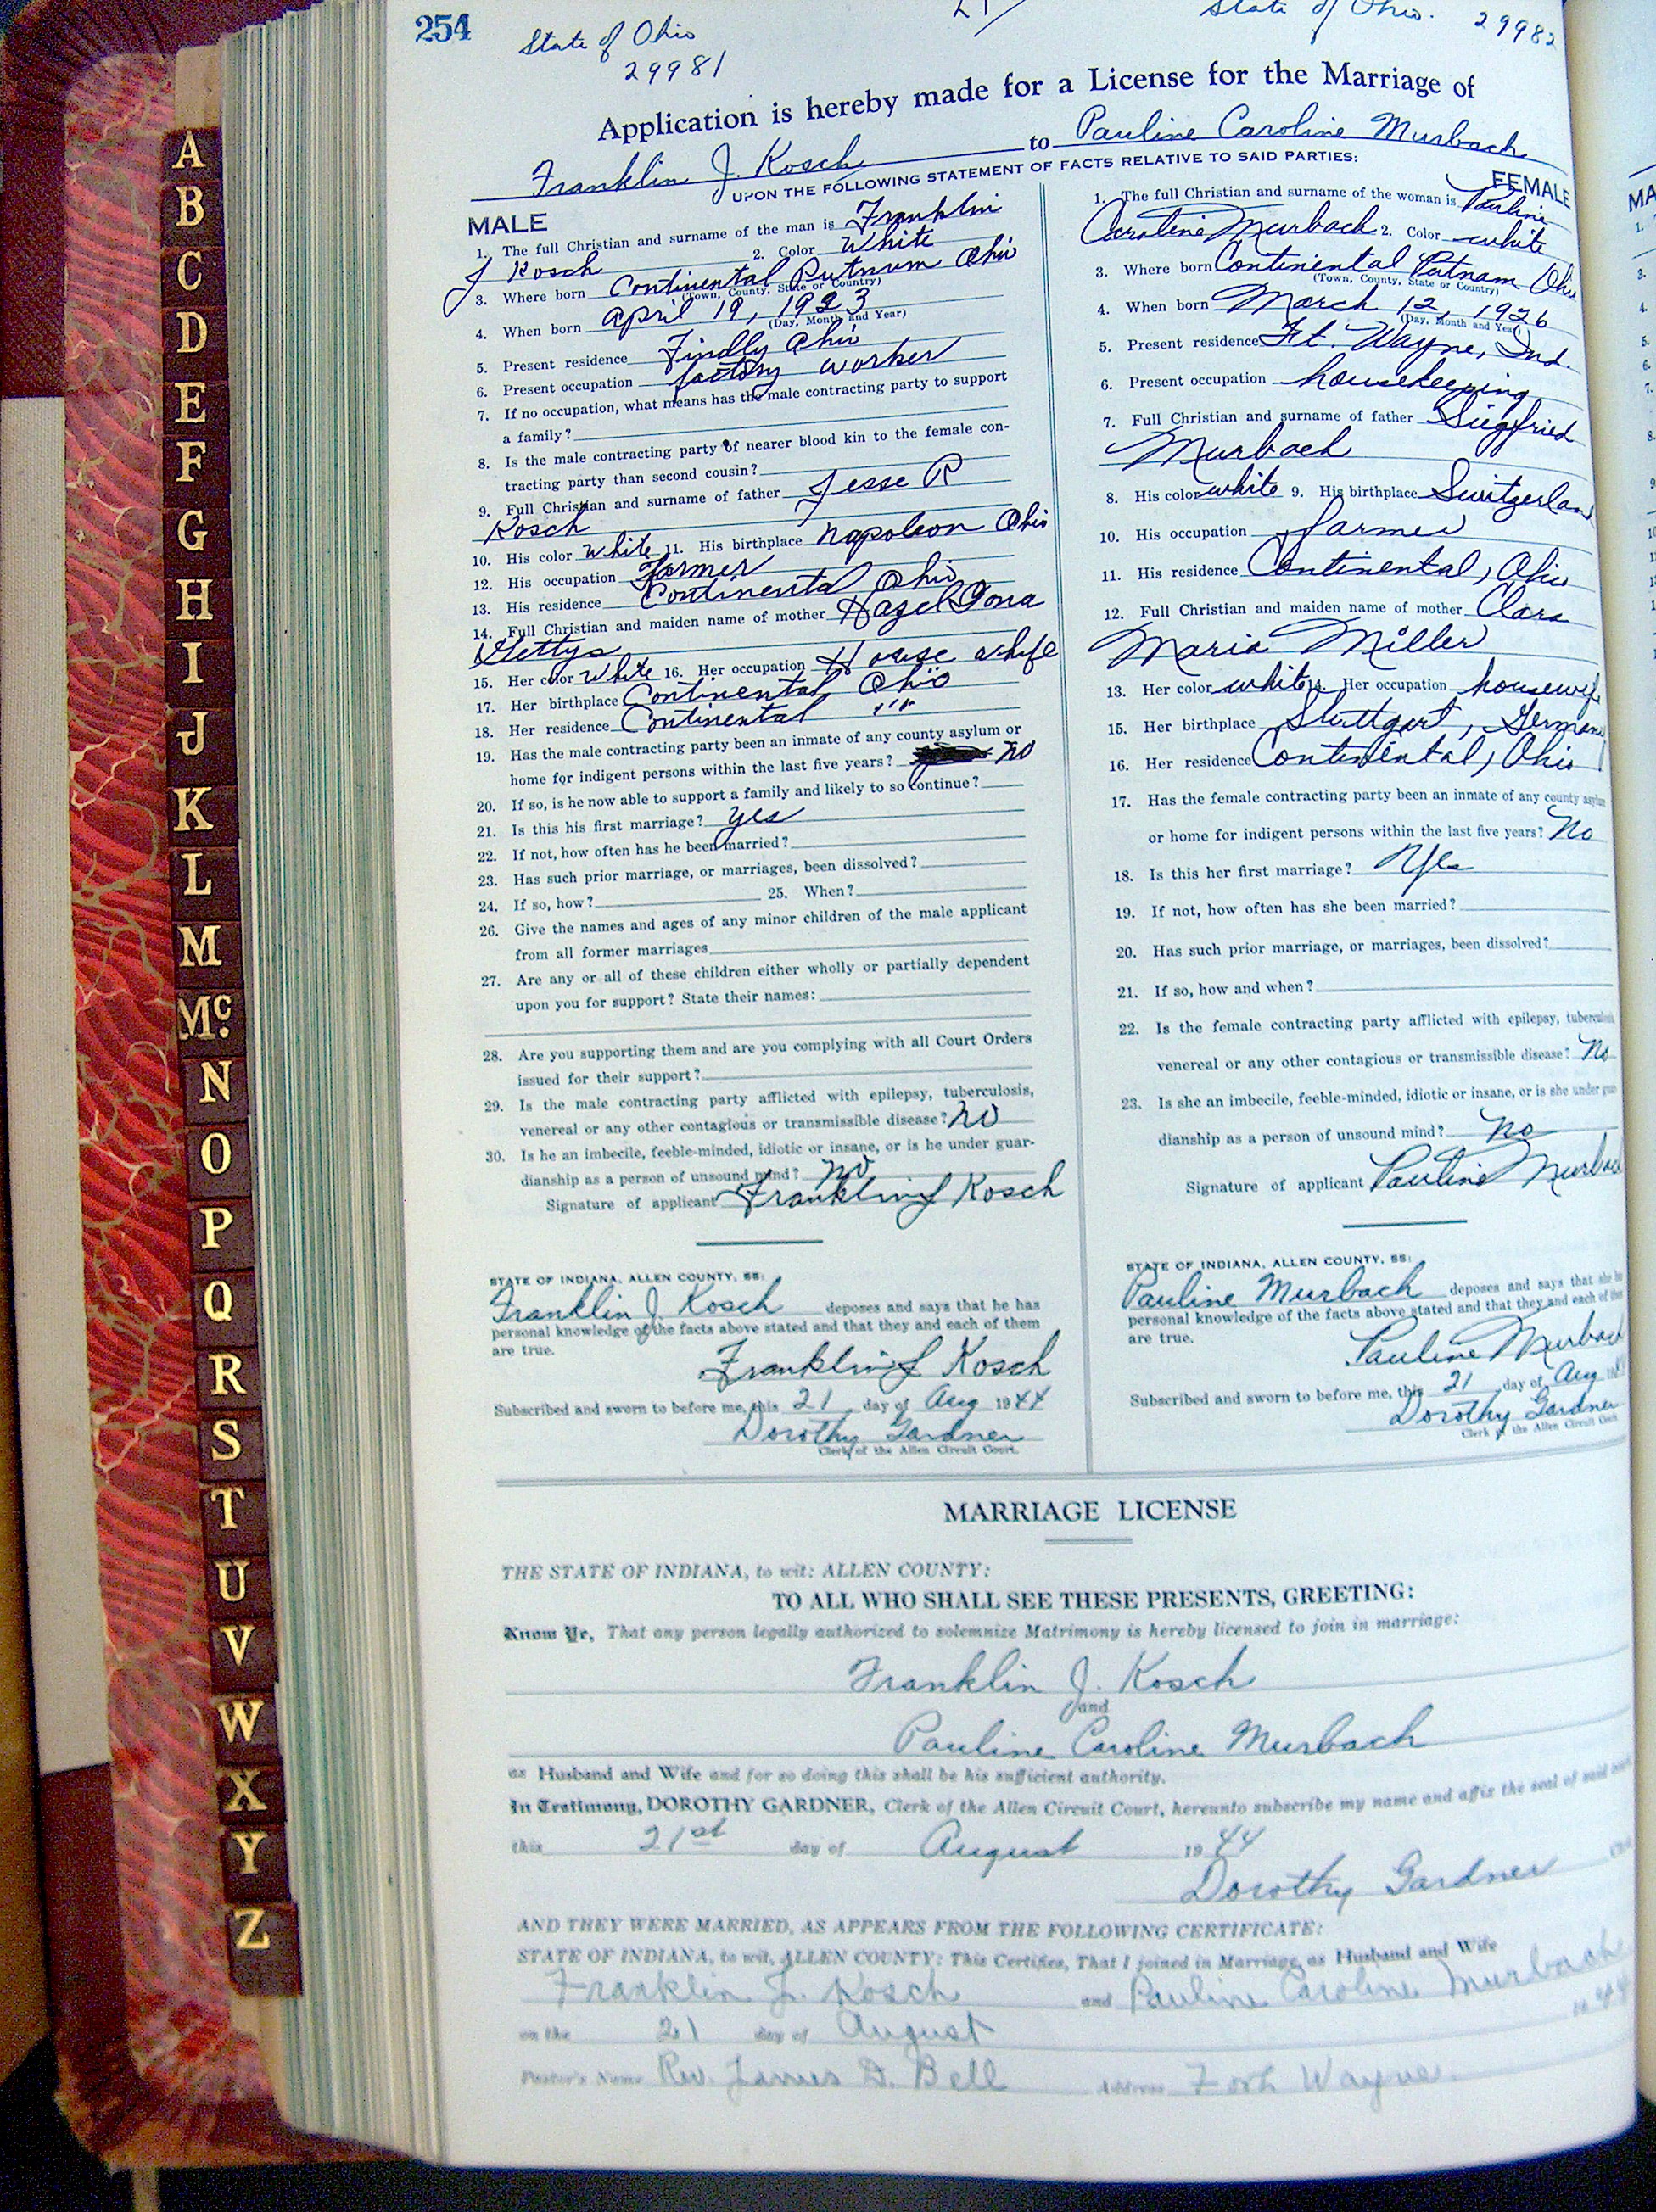 254
State of Ohio
29981
State of Ohio. 29982
Application is hereby made for a License for the Marriage of
Franklin J. Kosch to Pauline Caroline Murbach
UPON THE FOLLOWING STATEMENT OF FACTS RELATIVE TO SAID PARTIES:
MALE
1. The full Christian and surname of the man is Franklin
J Kosch 2. Color White
3. Where born Continental Putnum Ohio
(Town, County, State or Country)
4. When born april 19, 1923
(Day, Month and Year)
5. Present residence Findly Ohio
6. Present occupation factory worker
7. If no occupation, what means has the male contracting party to support
a family?
8. Is the male contracting party of nearer blood kin to the female con-
tracting party than second cousin?
9. Full Christian and surname of father Jesse R
Kosch
10. His color white 11. His birthplace napoleon Ohio
12. His occupation Farmer
13. His residence Continental Ohio
14. Full Christian and maiden name of mother Hazel Dona
Gettys
15. Her color white 16. Her occupation House whife
17. Her birthplace Continental Ohio
18. Her residence Continental "
19. Has the male contracting party been an inmate of any county asylum or
home for indigent persons within the last five years? no
20. If so, is he now able to support a family and likely to so continue?
21. Is this his first marriage? yes
22. If not, how often has he been married?
23. Has such prior marriage, or marriages, been dissolved?
24. If so, how? 25. When?
26. Give the names and ages of any minor children of the male applicant
from all former marriages
27. Are any or all of these children either wholly or partially dependent
upon you for support? State their names:
28. Are you supporting them and are you complying with all Court Orders
issued for their support?
29. Is the male contracting party afflicted with epilepsy, tuberculosis,
venereal or any other contagious or transmissible disease? no
30. Is he an imbecile, feeble-minded, idiotic or insane, or is he under guar-
dianship as a person of unsound mind? no
Signature of applicant Franklin J Kosch
STATE OF INDIANA, ALLEN COUNTY, SS:
Franklin J. Kosch deposes and says that he has
personal knowledge of the facts above stated and that they and each of them
are true.
Franklin J Kosch
Subscribed and sworn to before me, this 21 day of Aug 1944
Dorothy Gardner
Clerk of the Allen Circuit Court.
FEMALE
1. The full Christian and surname of the woman is Pauline
Caroline Murbach 2. Color white
3. Where born Continental Putnam Ohio
(Town, County, State or Country)
4. When born March 12, 1926
(Day, Month and Year)
5. Present residence Ft. Wayne, Ind.
6. Present occupation housekeeping
7. Full Christian and surname of father Siegfried
Murbach
8. His color white 9. His birthplace Switzerlan
10. His occupation farmer
11. His residence Continental, Ohio
12. Full Christian and maiden name of mother Clara
Maria Miller
13. Her color white 14. Her occupation housewife
15. Her birthplace Stuttgart, German
16. Her residence Continental, Ohio
17. Has the female contracting party been an inmate of any county asylum
or home for indigent persons within the last five years? No
18. Is this her first marriage? Yes
19. If not, how often has she been married?
20. Has such prior marriage, or marriages, been dissolved?
21. If so, how and when?
22. Is the female contracting party afflicted with epilepsy, tuberculosis
venereal or any other contagious or transmissible disease? No
23. Is she an imbecile, feeble-minded, idiotic or insane, or is she under guar
dianship as a person of unsound mind? No
Signature of applicant Pauline Murbac
STATE OF INDIANA, ALLEN COUNTY, SS:
Pauline Murbach deposes and says that she ha
personal knowledge of the facts above stated and that they and each of them
are true.
Pauline Murbach
Subscribed and sworn to before me, this 21 day of Aug
Dorothy Gardner
Clerk of the Allen Circuit Court
MARRIAGE LICENSE
THE STATE OF INDIANA, to wit: ALLEN COUNTY:
TO ALL WHO SHALL SEE THESE PRESENTS, GREETING:
Know Ye, That any person legally authorized to solemnize Matrimony is hereby licensed to join in marriage:
Franklin J. Kosch
and
Pauline Caroline Murbach
as Husband and Wife and for so doing this shall be his sufficient authority.
In Testimony, DOROTHY GARDNER, Clerk of the Allen Circuit Court, hereunto subscribe my name and affix the seal of said
this 21st day of August 1944
Dorothy Gardner
AND THEY WERE MARRIED, AS APPEARS FROM THE FOLLOWING CERTIFICATE:
STATE OF INDIANA, to wit, ALLEN COUNTY: This Certifies, That I joined in Marriage as Husband and Wife
Franklin J. Kosch and Pauline Caroline Murbach
on the 21 day of August 1944
Pastor's Name Rev. James D. Bell Address Fort Wayne
A
B
C
D
E
F
G
H
I
J
K
L
M
Mc.
N
O
P
Q
R
S
T
U
V
W
X
Y
Z